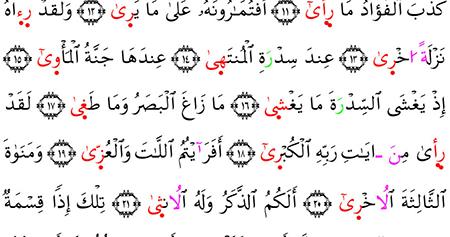 كَذَبَ ٱلْفُؤَادُ مَا رِأىٰٓ ﴿١١﴾ أَفَتُمَٰرُونَهُۥ عَلَىٰ مَا يَرِىٰ ﴿١٢﴾ وَلَقَدْ رِءاهُ
نَزْلَةً ا۟خْرِىٰ ﴿١٣﴾ عِندَ سِدْرَةِ ٱلْمُنتَهِىٰ ﴿١٤﴾ عِندَهَا جَنَّةُ ٱلْمَأْوِىٰٓ ﴿١٥﴾
إِذْ يَغْشَى ٱلسِّدْرَةَ مَا يَغْشِىٰ ﴿١٦﴾ مَا زَاغَ ٱلْبَصَرُ وَمَا طَغِىٰ ﴿١٧﴾ لَقَدْ
رِأىٰ مِنَ ـ ايَٰتِ رَبِّهِ ٱلْكُبْرِىٰٓ ﴿١٨﴾ أَفَرَآيْتُمُ ٱللَّٰتَ وَٱلْعُزِّىٰ ﴿١٩﴾ وَمَنَوٰةَ
ٱلثَّالِثَةَ ٱلُاخْرِىٰٓ ﴿٢٠﴾ أَلَكُمُ ٱلذَّكَرُ وَلَهُ ٱلُانثِىٰ ﴿٢١﴾ تِلْكَ إِذًا قِسْمَةٌ